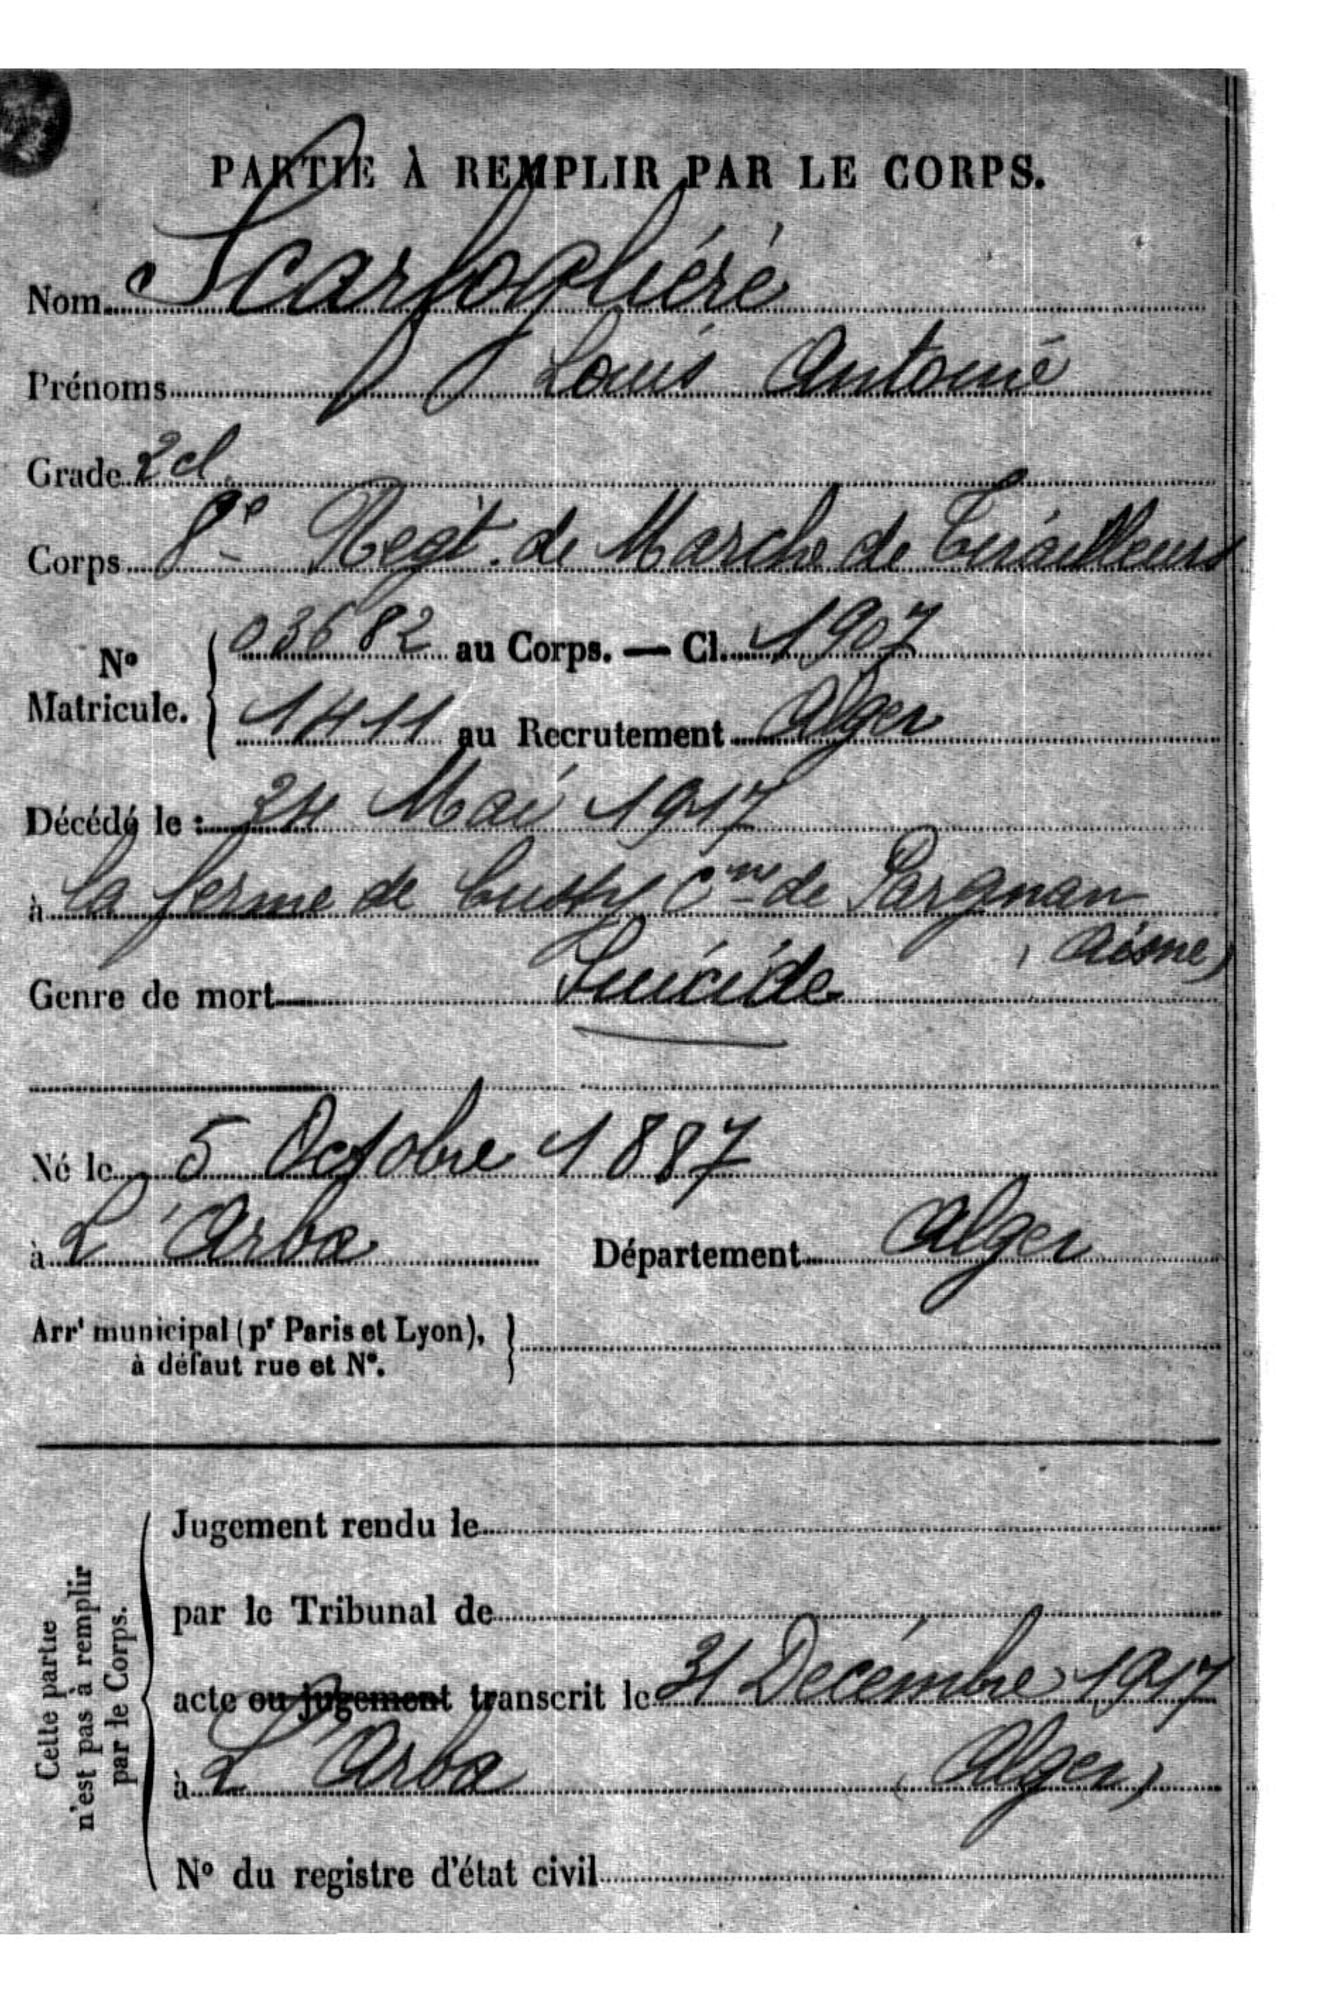 PARTIE À REMPLIR PAR LE CORPS.
Nom Scarfogliéré
Prénoms Louis Antoine
Grade 2 cl.
Corps 8e Regt. de Marche de Tirailleurs
No Matricule. 03682 au Corps. — Cl. 1907
1411 au Recrutement Alger
Décédé le : 24 Mai 1917
à la ferme de Cussy Cne de Pargnan
(Aisne)
Genre de mort Suicide
Né le 5 Octobre 1887
à L'Arba Département Alger
Arrt municipal (pr Paris et Lyon),
à défaut rue et No.
Cette partie
n'est pas à remplir
par le Corps.
Jugement rendu le
par le Tribunal de
acte ou jugement transcrit le 31 Decémbre 1917
à L'Arba (Alger)
No du registre d'état civil